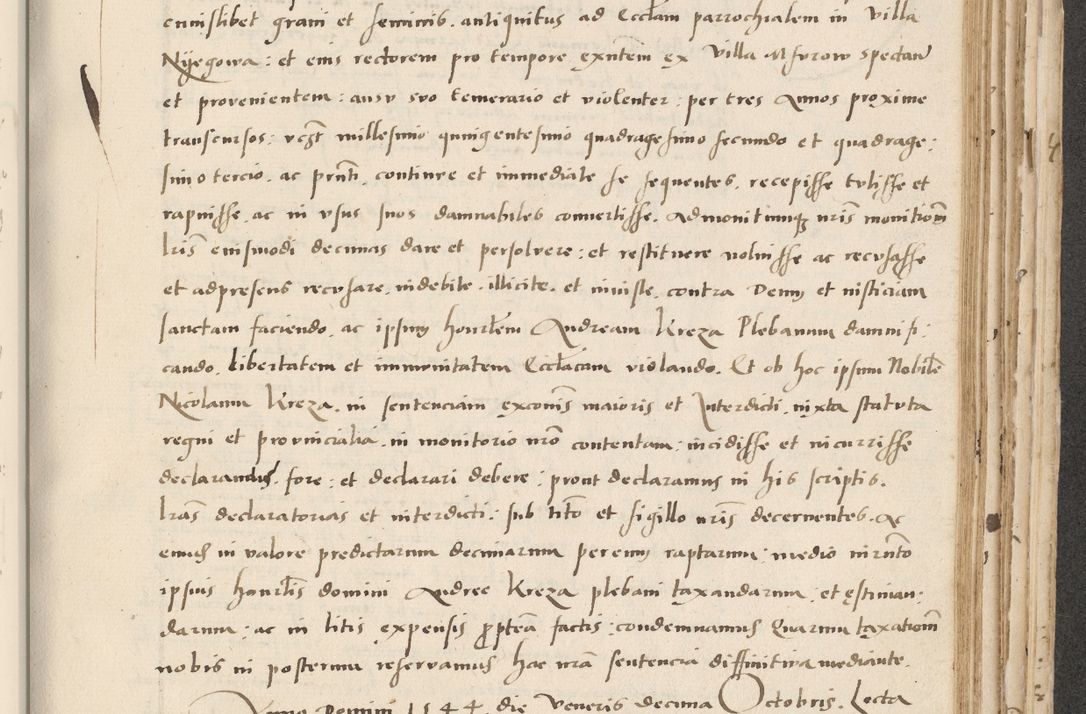 cuiuslibet grani et seminis. antiquitus ad Eccl̃am parrochialem in villa
Nyegowa: et eius rectorem pro tempore exnt̃em ex villa Mfvrow spectand̃
et provenientem: ausv svo temerario et violenter: per tres Annos proxime
transcursos: vcz̃t millesimo quingentesimo quadragesimo secundo et quadrage:
simo tercio. ac prñti. continve et immediate se sequentes. recepisse tvlisse et
rapuisse. ac in vsus suos damnabiles convertisse. Admonitumq; nr̃is monitiom̃
lr̃is eiusmodi decimas dare et persolvere: et restituere noluisse ac recvsasse
et adpresens recvsare, indebite. illicite. et iniuste. contra Deum et iusticiam
sanctam faciendo. ac ipsum honrl̃em Andream Kreza Plebanum damnifi:
cando. libertatem et immunitatem Eccl̃acam violando. Et ob hoc ipsum Nobile᷈
Nicolaum Kreza. in sentenciam excom̃is maioris et Interdicti. iuxta statvta
regni et provincialia. in monitorio nr̃o contentam: incidisse et incurrisse
declarandus. fore: et declarari debere: prout declaramus in his scriptis.
lr̃as declaratorias et interdicti: sub tit̃o et sigillo nr̃is decernentes. Ac
eum in valore predictarum decimarum per eum raptarum: medio iurñto
ipsius honrl̃is domini Andree Kreza plebani taxandarum: et estiman:
darum: ac in litis expensis ꝓpteã factis: condemnamus Quarum taxatiom̃
nobis in posterum reservamus hac nr̃a sentencia diffinitiva mediante.
Anno Domini 1544. die Veneris decima Octobris. Lecta